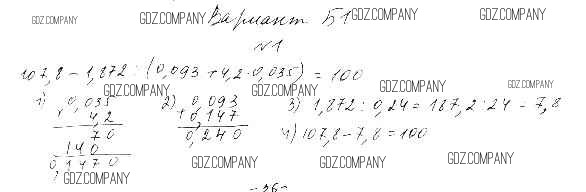 GDZ.COMPANY Вариант Б1 GDZ.COMPANY GDZ.COMPANY
GDZ.COMPANY
№1
107,8 - 1,872 : (0,093 + 4,2 · 0,035) = 100
GDZ.COMPANY GDZ.COMPANY GDZ.COMPANY GDZ.COMPANY
1) 0,035 2) 0,093 3) 1,872 : 0,24 = 187,2 : 24 = 7,8
× 4,2 + 0,147
70 0,240 4) 107,8 - 7,8 = 100
140
0,1470 GDZ.COMPANY GDZ.COMPANY GDZ.COMPANY
GDZ.COMPANY
- 36 -